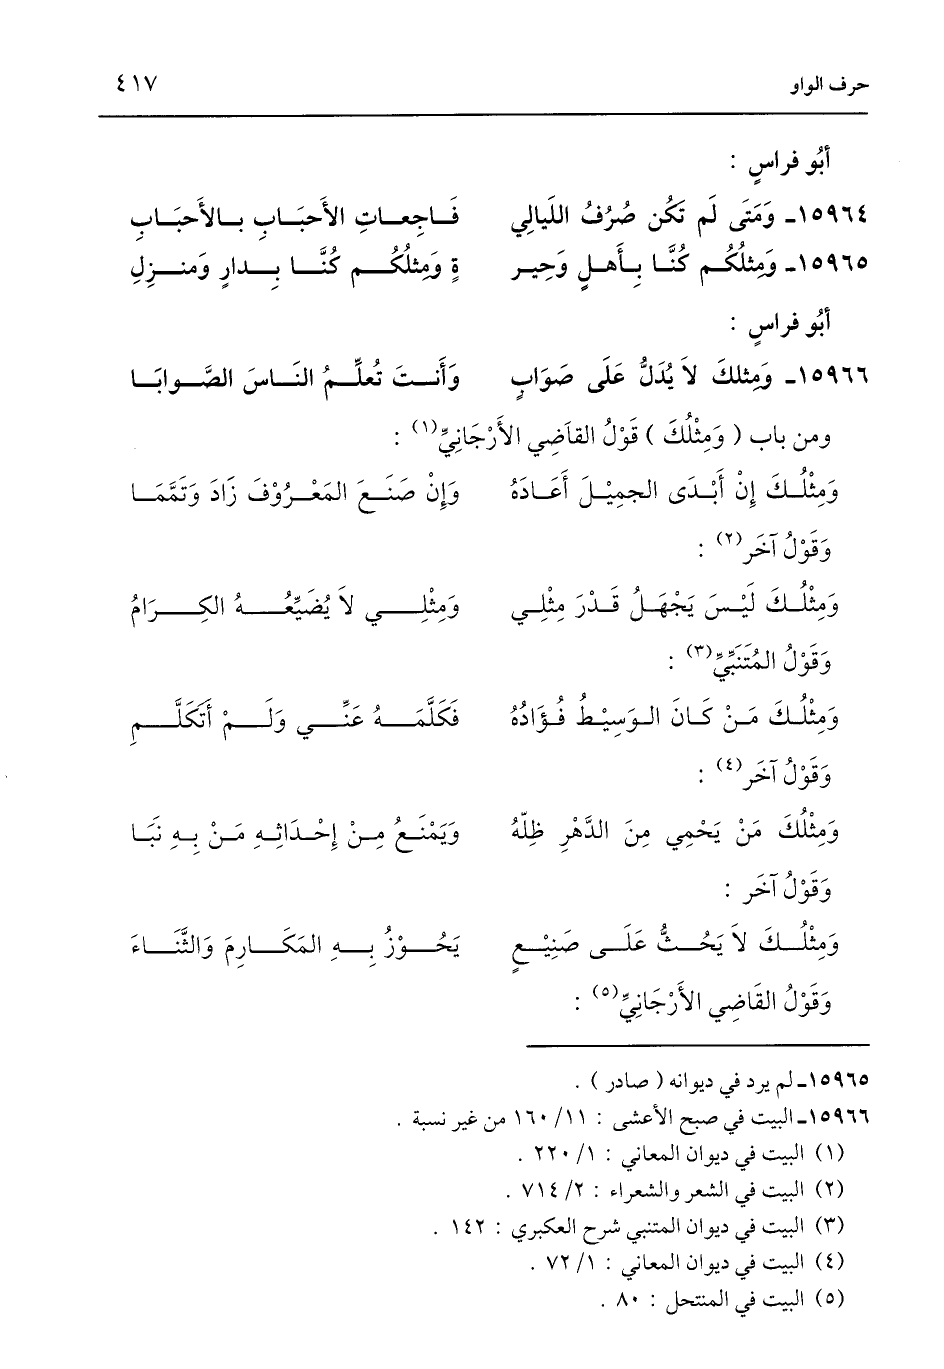 حرف الواو ٤١٧
أبُو فراسٍ :
١٥٩٦٤ـ وَمَتَى لَم تَكُن صُرُفُ اللَيالِي فَاجعاتِ الأَحبَابِ بالأَحبَابِ
١٥٩٦٥ـ وَمِثلُكُم كُنَّا بأهلٍ وَجِير ةٍ وَمِثلُكُم كُنَّا بِدارٍ وَمنزِلِ
أبُو فراسٍ :
١٥٩٦٦ـ وَمِثلكَ لاَ يُدَلُّ عَلَى صَوَابٍ وَأَنتَ تُعلِّمُ الناسَ الصَّوابَا
ومن باب ( وَمِثْلُكَ ) قَوْلُ القاَضِي الأَرْجَانِيِّ(١) :
وَمِثْلُكَ إِنْ أَبْدَى الجمِيْلَ أَعَادَهُ وَإِنْ صَنَعَ المَعْرُوْفَ زَادَ وَتَمَّمَا
وَقَوْلُ آخَر(٢) :
وَمِثْلُكَ لَيْسَ يَجْهَلُ قَدْرَ مِثْلِي وَمِثْلِي لاَ يُضَيِّعُهُ الكِرَامُ
وَقَوْلُ المُتَنَبِّيِّ(٣) :
وَمِثْلُكَ مَنْ كَانَ الوَسِيْطُ فُؤَادُهُ فَكَلَّمَهُ عَنِّي وَلَمْ أَتَكَلَّمِ
وَقَوْلُ آخَر(٤) :
وَمِثْلُكَ مَنْ يَحْمِي مِنَ الدَّهْرِ ظِلّهُ وَيَمْنَعُ مِنْ إحْدَاثِهِ مَنْ بِهِ نَبَا
وَقَوْلُ آخَر :
وَمِثْلُكَ لاَ يَحُثُّ عَلَى صَنِيْعٍ يَحُوْزُ بِهِ المَكَارِمَ وَالثَّنَاءَ
وَقَوْلُ القَاضِي الأَرْجَانِيِّ(٥) :
١٥٩٦٥ـ لم يرد في ديوانه ( صادر ) .
١٥٩٦٦ـ البيت في صبح الأعشى : ١١/ ١٦٠ من غير نسبة .
(١) البيت في ديوان المعاني : ١/ ٢٢٠ .
(٢) البيت في الشعر والشعراء : ٢/ ٧١٤ .
(٣) البيت في ديوان المتنبي شرح العكبري : ١٤٢ .
(٤) البيت في ديوان المعاني : ١/ ٧٢ .
(٥) البيت في المنتحل : ٨٠ .